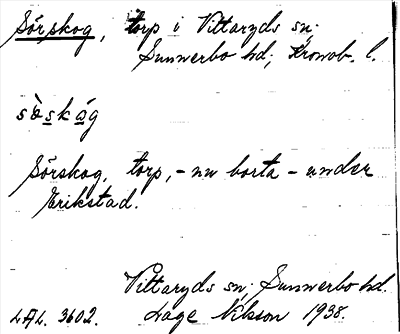 Sörskog, torp i Vittaryds sn;
Sunnerbo hd; Kronob. l.
sòskóg
Sörskog, torp, - nu borta - under
Erikstad.
Vittaryds sn; Sunnerbo hd.
LAL. 3602. Lage Nilsson 1938.